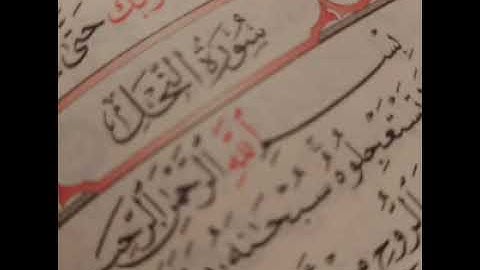 رَبَّكَ حَتَّىٰ
سُورَةُ النَّحْلِ
بِسْمِ اللَّهِ الرَّحْمَٰنِ الرَّحِيمِ
تَسْتَعْجِلُوهُ سُبْحَٰنَهُ
الرُّوحِ